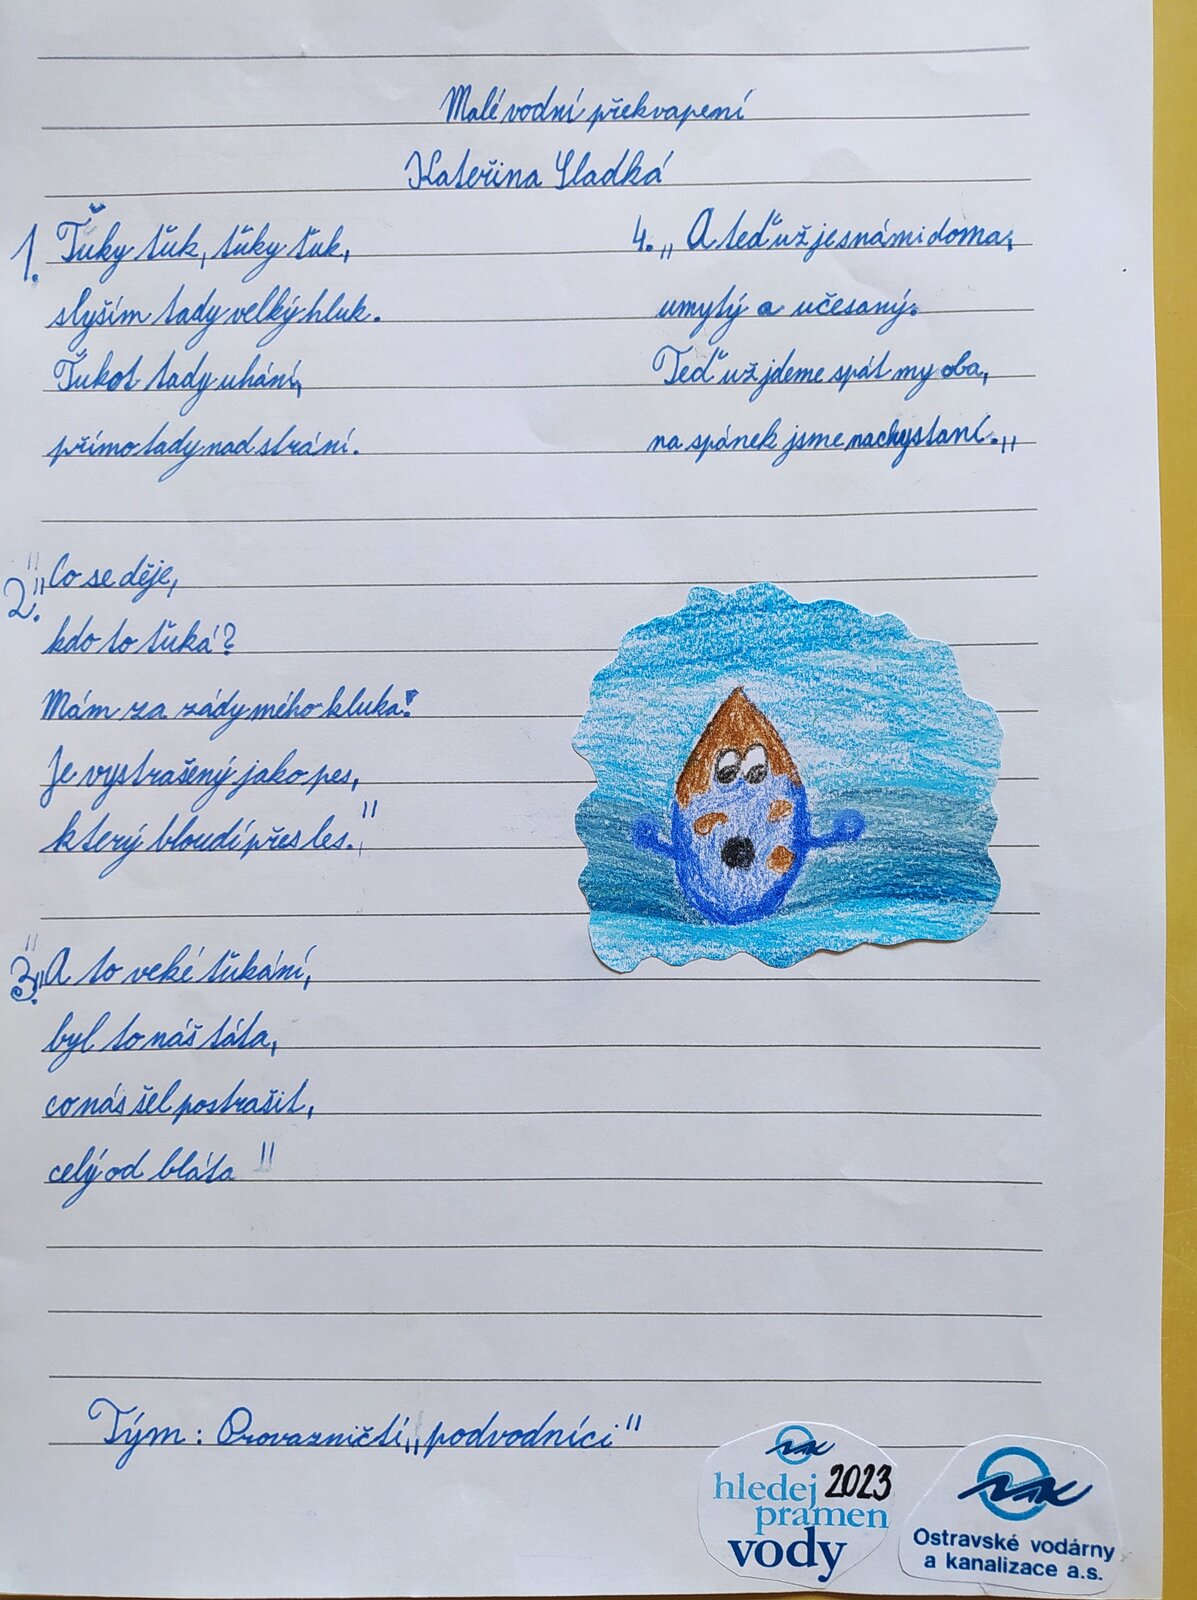 Malé vodní překvapení
Kateřina Sladká
1. Ťuky ťuk, ťuky ťuk,
slyším tady velký hluk.
Ťukot tady uhání,
přímo tady nad strání.
2. „Co se děje,
kdo to ťuká?
Mám za zády mého kluka!
Je vystrašený jako pes,
který bloudí přes les."
3. „A to veké ťukání,
byl to náš táta,
co nás šel postrašit,
celý od bláta"
4. „A teď už je s námi doma,
umytý a učesaný.
Teď už jdeme spát my oba,
na spánek jsme nachystaní.„
Tým: Provazničtí „podvodníci"
hledej 2023
pramen
vody
Ostravské vodárny
a kanalizace a.s.